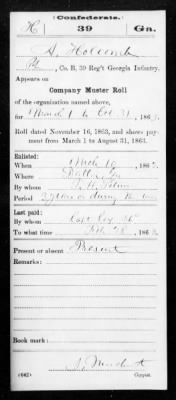 (Confederate.)
H 39 Ga.
A. Holcomb
Pt, Co. B, 39 Reg't Georgia Infantry.
Appears on
Company Muster Roll
of the organization named above,
for March 1 to Oct 31, 1863.
Roll dated November 16, 1863, and shows payment from March 1 to August 31, 1863.
Enlisted:
When Mch 10, 1862.
Where
By whom
Period 3 years or during the war
Last paid:
By whom Capt
To what time Feb 28, 1863.
Present or absent Present
Remarks:
Book mark:
(642) Copyist.